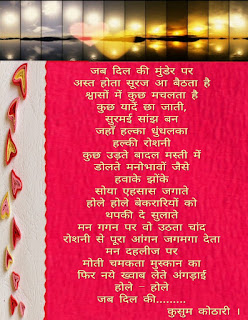 जब दिल की मुंडेर पर
अस्त होता सूरज आ बैठता है
श्वासों में कुछ मचलता है
कुछ यादें छा जाती,
सुरमई सांझ बन
जहाँ हल्का धुंधलका
हल्की रोशनी
कुछ उड़ते बादल मस्ती में
डोलते मनोभावों जैसे
हवाके झोंके
सोया एहसास जगाते
होले होले बेकरारियों को
थपकी दे सुलाते
मन गगन पर वो उठता चांद
रोशनी से पूरा आंगन जगमगा देता
मन दहलीज पर
मोती चमकता मुस्कान का
फिर नये ख्वाब लेते अंगड़ाई
होले - होले
जब दिल की.........
कुसुम कोठारी ।